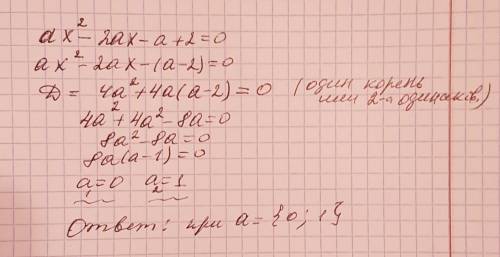 ax² - 2ax - a + 2 = 0
ax² - 2ax - (a-2) = 0
D = 4a² + 4a(a-2) = 0 (один корень
или 2-а одинаков.)
4a² + 4a² - 8a = 0
8a² - 8a = 0
8a(a-1) = 0
a₁ = 0 a₂ = 1
Ответ: при a = {0; 1}